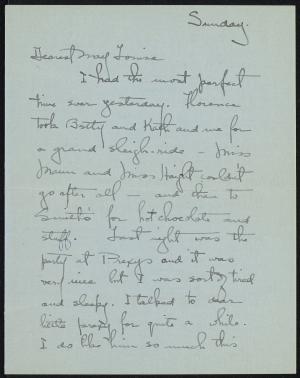 Sunday.
Dearest May Louise
I had the most perfect
time ever yesterday. Florence
took Betty and Kath and me for
a grand sleigh-ride – Miss
Mum and Miss Haight couldn't
go after all – and then to
Smith's for hot chocolate and
stuff. Last night was the
party at and it was
very nice but I was sort of tired
and sleepy. I talked to dear
little for quite a while.
I do like him so much this